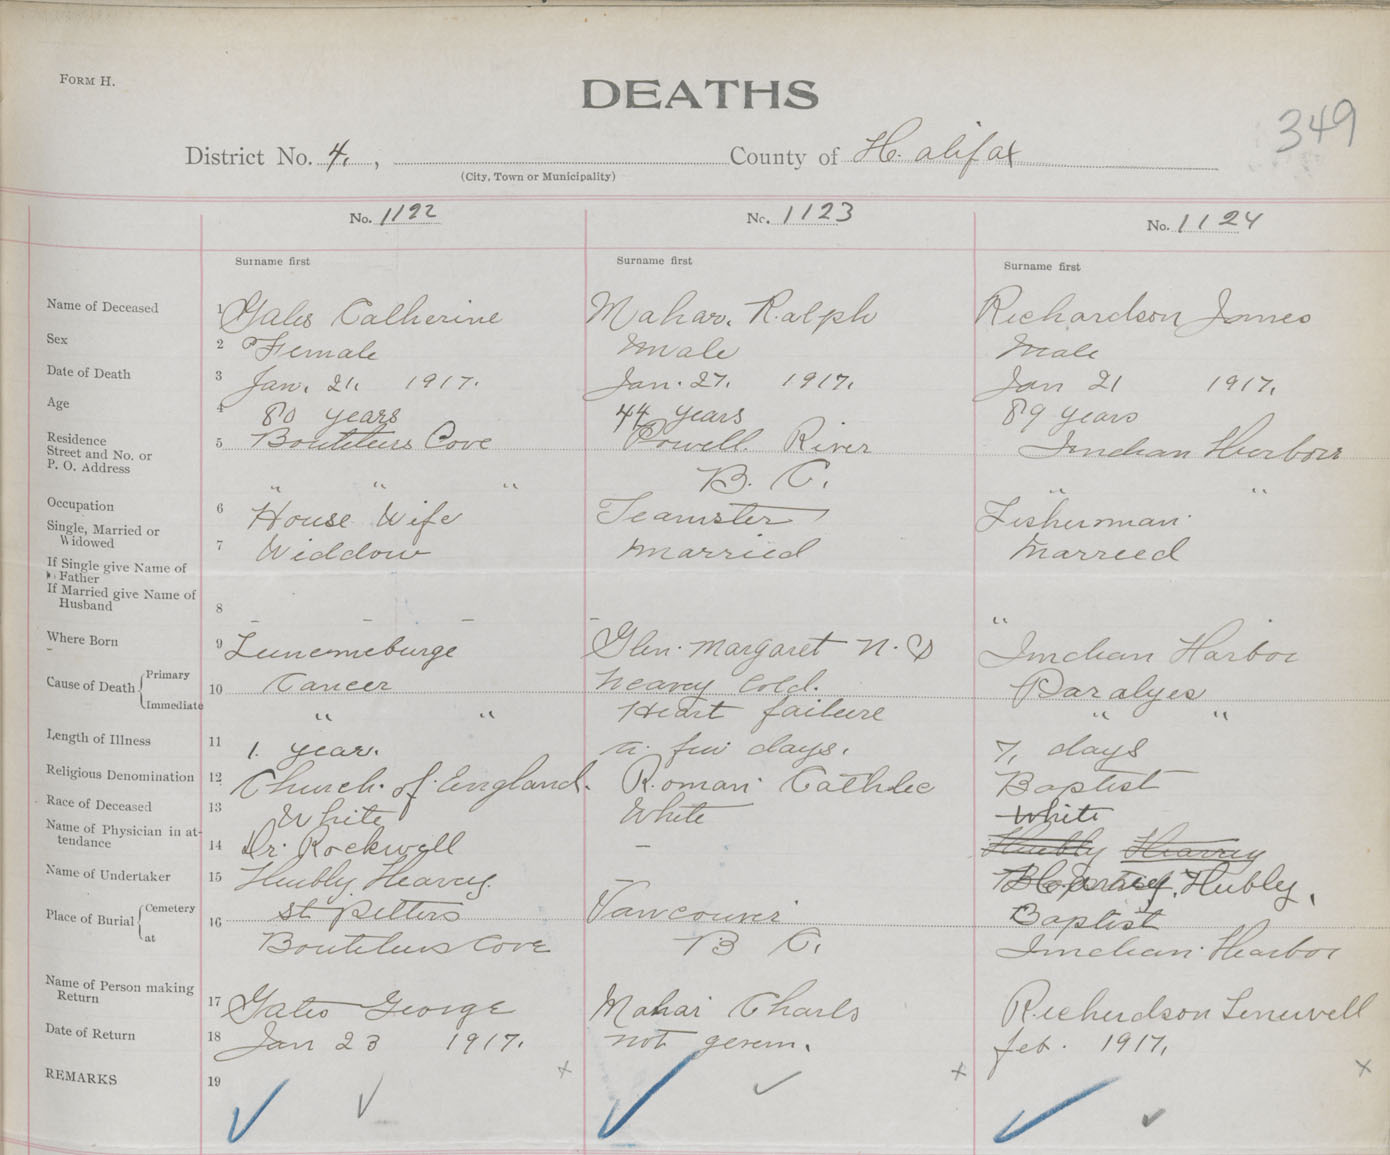 FORM H.
DEATHS
349
District No. 4. , County of Halifax
(City, Town or Municipality)
No. 1122 No. 1123 No. 1124
Surname first Surname first Surname first
Name of Deceased 1 Gates Catherine Mahar. Ralph Richardson James
Sex 2 Female Male Male
Date of Death 3 Jan. 21. 1917. Jan. 27. 1917. Jan 21 1917.
Age 4 80 years 44 years 89 years
Residence Street and No. or P. O. Address 5 Boutiliers Cove Powell River Indian Harbour
" " " B. C. " "
Occupation 6 House Wife Teamster Fisherman
Single, Married or Widowed 7 Widdow Married Marreed
If Single give Name of Father
If Married give Name of Husband 8 - - - - "
Where Born 9 Lunenneburge Glen. Margaret N. S Indian Harbor
Cause of Death Primary 10 Cancer heavey Cold. Paralyes
Immediate " " Heart failure " "
Length of Illness 11 1. year. a. few days. 7, days
Religious Denomination 12 Church. of England. Roman Cathlec Baptist
Race of Deceased 13 White White White
Name of Physician in attendance 14 Dr. Rockwell - Huubly Hearvey
Name of Undertaker 15 Huubly Hearvey. - Hubly.
Place of Burial Cemetery 16 St Petters Vancouver Baptist
at Boutiliers Cove B C. Indian Harbor
Name of Person making Return 17 Gates George Mahar Charls Richerdson
Date of Return 18 Jan 23 1917. not gevem. feb. 1917.
REMARKS 19